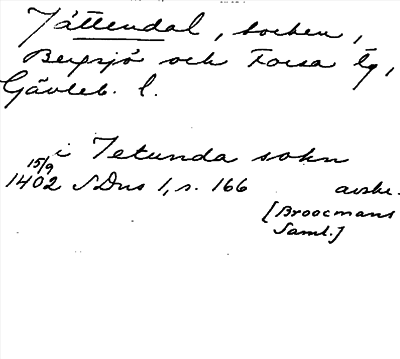 Jättendal, socken,
Bergsjö och Forsa tg,
Gävleb. l.
i Jetunda sokn
15/9
1402 SDns 1, s. 166 avskr.
[Broocmans
Saml.]